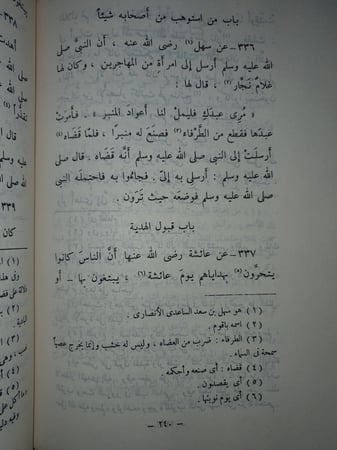 باب من استوهب من أصحابه شيئاً
٣٣٦ – عن سهل (١) رضى الله عنه ، أن النبى صلى
الله عليه وسلم أرسل إلى امرأة من المهاجرين ، وكان لها
غلام نجار (٢) ، قال لها :
« مُرى عبدَكِ فليعملْ لنا أعواد المنبر » . فأمرتْ
عبدَها فقطع من الطَّرفاء (٣) فصنع له منبرا ، فلمّا قضاه (٤)
أرسلتْ إلى النبى صلى الله عليه وسلم أنّه قضاه . قال صلى
الله عليه وسلم : أرسلى به إلىّ . فجاءوا به فاحتمله النبى
صلى الله عليه وسلم فوضعه حيث تَرَون .
باب قبول الهدية
٣٣٧ – عن عائشة رضى الله عنها أنّ الناسَ كانوا
يتحرَّون (٥) بهداياهم يومَ عائشة (٦) ، يبتغون بها – أو
(١) هو سهل بن سعد الساعدى الأنصارى .
(٢) اسمه باقوم .
(٣) الطرفاء : ضرب من العضاه ، وليس له خشب وإنما يخرج عصياً
سمحة فى السماء .
(٤) قضاه : أى صنعه وأحكمه .
(٥) أى يقصدون .
(٦) أى يوم نوبتها .
– ٢٤٠ –